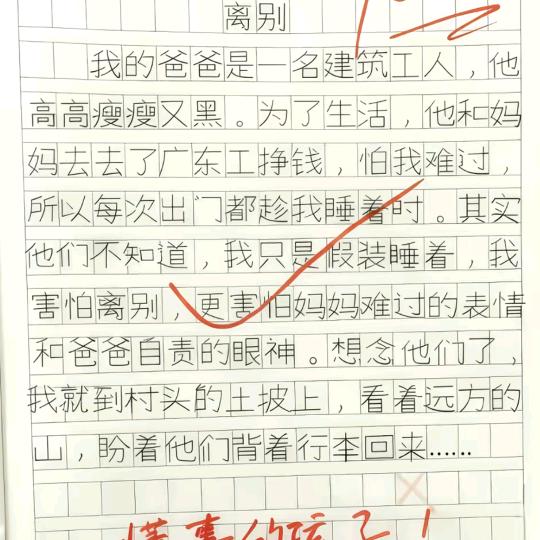 离别
我的爸爸是一名建筑工人，他
高高瘦瘦又黑。为了生活，他和妈
妈去去了广东工挣钱，怕我难过，
所以每次出门都趁我睡着时。其实
他们不知道，我只是假装睡着，我
害怕离别，更害怕妈妈难过的表情
和爸爸自责的眼神。想念他们了，
我就到村头的土坡上，看着远方的
山，盼着他们背着行李回来……
懂事的孩子！